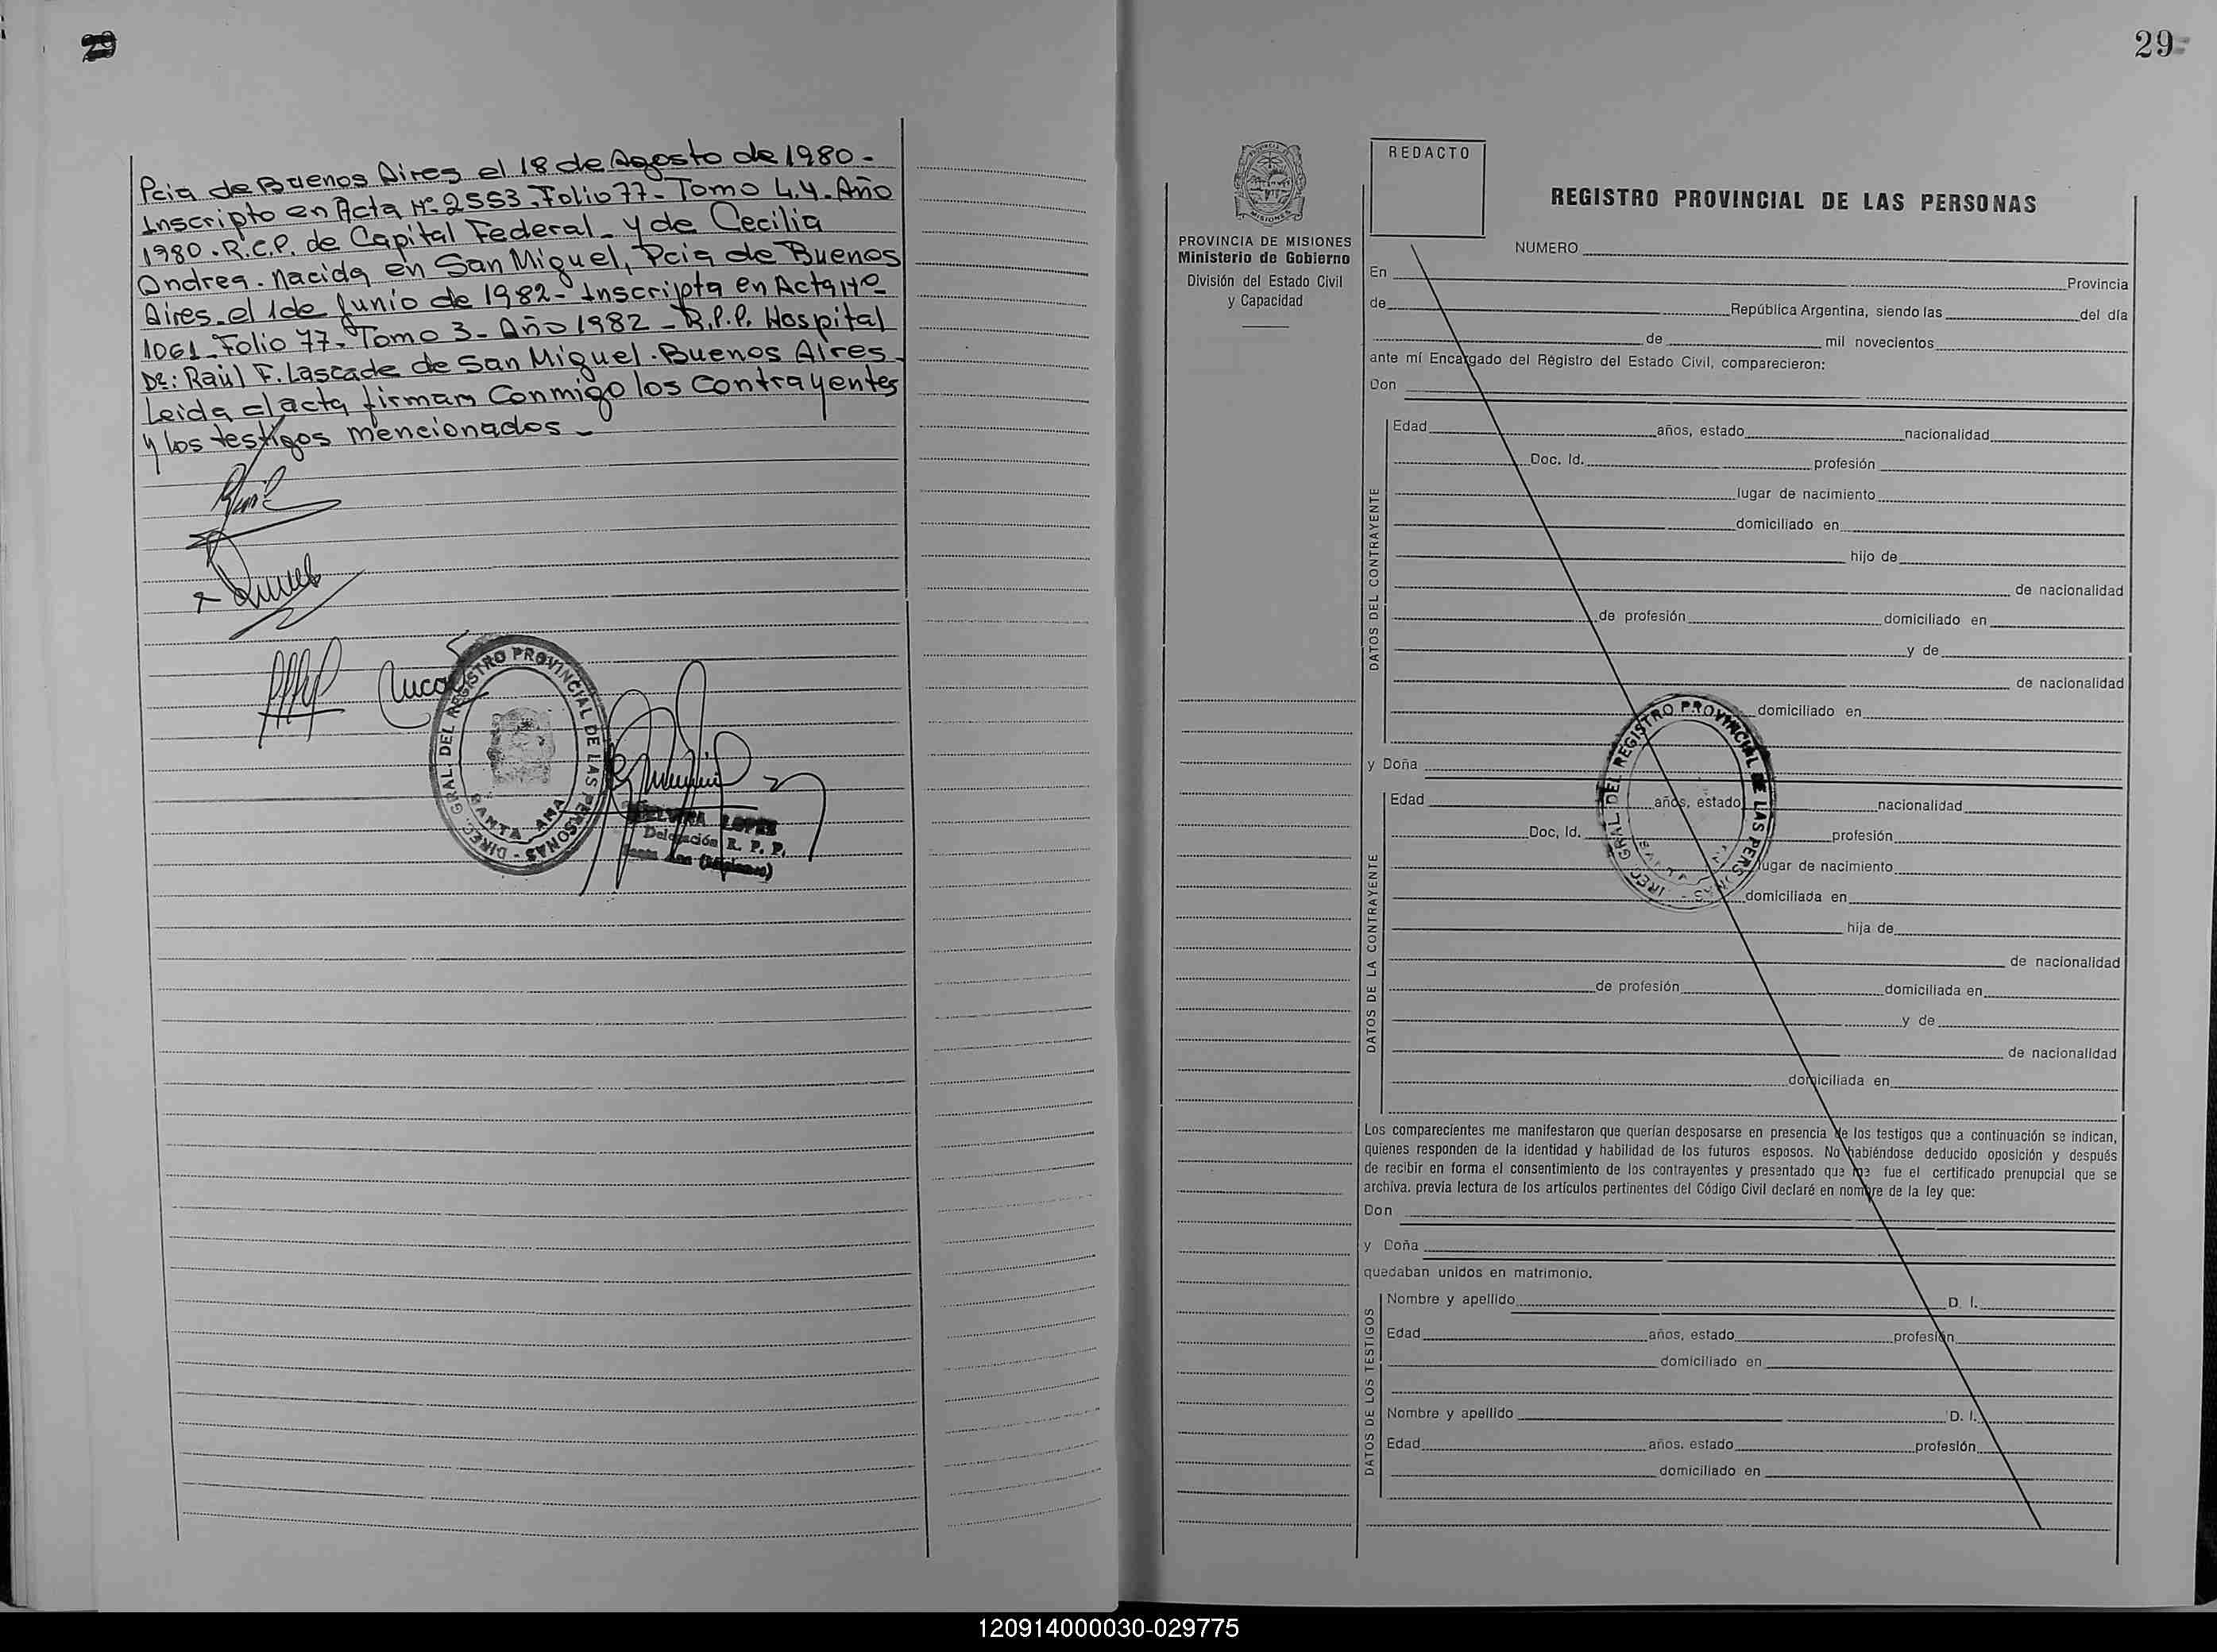 29
Pcia de Buenos Aires el 18 de Agosto de 1980 -
Inscripto en Acta Nº 2553. Folio 77 - Tomo 4.Y. Año
1980. R.C.P. de Capital Federal - y de Cecilia
Andrea. Nacida en San Miguel, Pcia de Buenos
Aires. el 1 de Junio de 1982 - Inscripta en Acta Nº
1061 - Folio 77 - Tomo 3 - Año 1982 - R.P.P. Hospital
Dr: Raúl F. Lascade de San Miguel. Buenos Aires -
Leida el acta firman Conmigo los Contrayentes
y los testigos mencionados -
DIREC. GRAL. DEL REGISTRO PROVINCIAL DE LAS PERSONAS -
SANTA ANA
LOPEZ
Delegación R. P. P.
Santa Ana (Misiones)
29
PROVINCIA DE MISIONES
Ministerio de Gobierno
División del Estado Civil
y Capacidad
REDACTO
REGISTRO PROVINCIAL DE LAS PERSONAS
NUMERO
En Provincia
de República Argentina, siendo las del día
de mil novecientos
ante mí Encargado del Registro del Estado Civil, comparecieron:
Don
DATOS DEL CONTRAYENTE
Edad años, estado nacionalidad
Doc. Id. profesión
lugar de nacimiento
domiciliado en
hijo de
de nacionalidad
de profesión domiciliado en
y de
de nacionalidad
domiciliado en
y Doña
DATOS DE LA CONTRAYENTE
Edad años, estado nacionalidad
Doc, Id. profesión
lugar de nacimiento
domiciliada en
hija de
de nacionalidad
de profesión domiciliada en
y de
de nacionalidad
domiciliada en
DIREC. GRAL. DEL REGISTRO PROVINCIAL DE LAS PERSONAS -
SANTA
Los comparecientes me manifestaron que querían desposarse en presencia de los testigos que a continuación se indican,
quienes responden de la identidad y habilidad de los futuros esposos. No habiéndose deducido oposición y después
de recibir en forma el consentimiento de los contrayentes y presentado que me fue el certificado prenupcial que se
archiva. previa lectura de los artículos pertinentes del Código Civil declaré en nombre de la ley que:
Don
y Doña
quedaban unidos en matrimonio.
DATOS DE LOS TESTIGOS
Nombre y apellido D. I.
Edad años, estado profesión
domiciliado en
Nombre y apellido D. I.
Edad años. estado profesión
domiciliado en
120914000030-029775